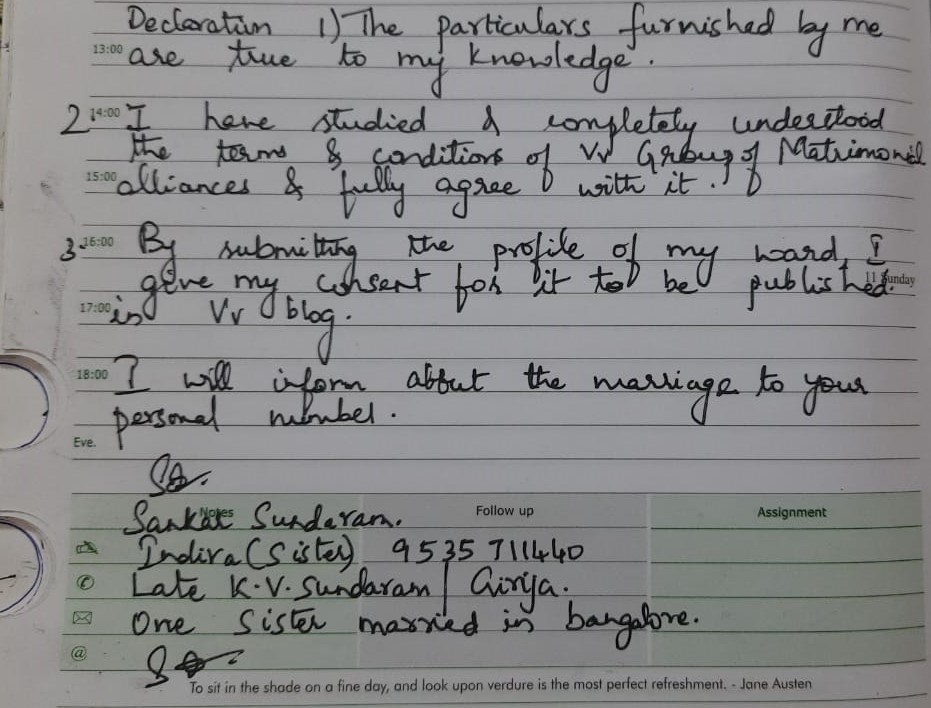 Declaration 1) The particulars furnished by me
13:00 are true to my knowledge.
2 14:00 I have studied & completely understood
the terms & conditions of Vv Group of Matrimonial
15:00 alliances & fully agree with it.
3. 16:00 By submitting the profile of my ward, I
give my consent for it to be published. 11 Sunday
17:00 in Vv blog.
18:00 I will inform about the marriage to your
personal number.
Eve.
Notes Follow up Assignment
Sankar Sundaram.
Indira (Sister) 9535 711440
Late K.V. Sundaram / Girija.
@ One Sister married in bangalore.
To sit in the shade on a fine day, and look upon verdure is the most perfect refreshment. - Jane Austen